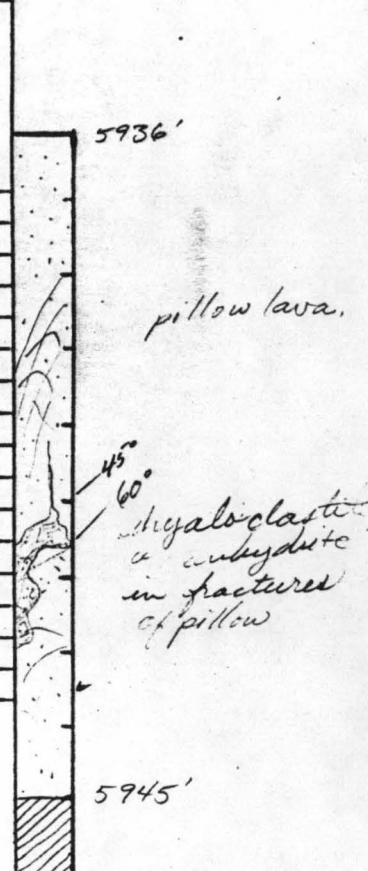 5936'
pillow lava.
45°
60°
hyaloclastite
anhydrite
in fractures
of pillow
5945'